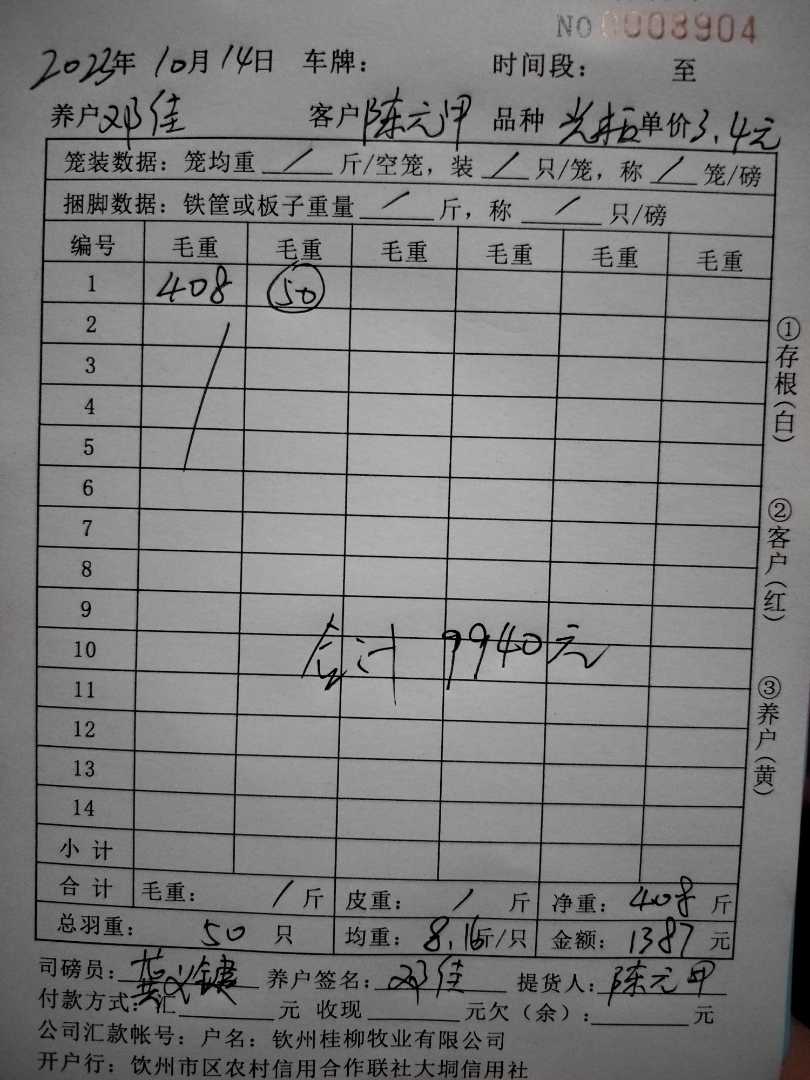 NO 0008904
2023年 10月 14日 车牌： 时间段： 至
养户 邓佳 客户 陈元甲 品种 单价 3.4元
笼装数据：笼均重 / 斤/空笼，装 / 只/笼，称 / 笼/磅
捆脚数据：铁筐或板子重量 / 斤，称 / 只/磅
编号 毛重 毛重 毛重 毛重 毛重 毛重
1 408 50
2
3
4
5
6
7
8
9
合计 9940元
10
11
12
13
14
小计
合计 毛重： / 斤 皮重： / 斤 净重： 408 斤
总羽重： 50 只 均重： 8.16 斤/只 金额： 1387 元
司磅员： 养户签名： 邓佳 提货人： 陈元甲
付款方式：汇 元 收现 元欠（余）： 元
公司汇款帐号：户名：钦州桂柳牧业有限公司
开户行：饮州市区农村信用合作联社大垌信用社
①存根(白)
②客户(红)
③养户(黄)